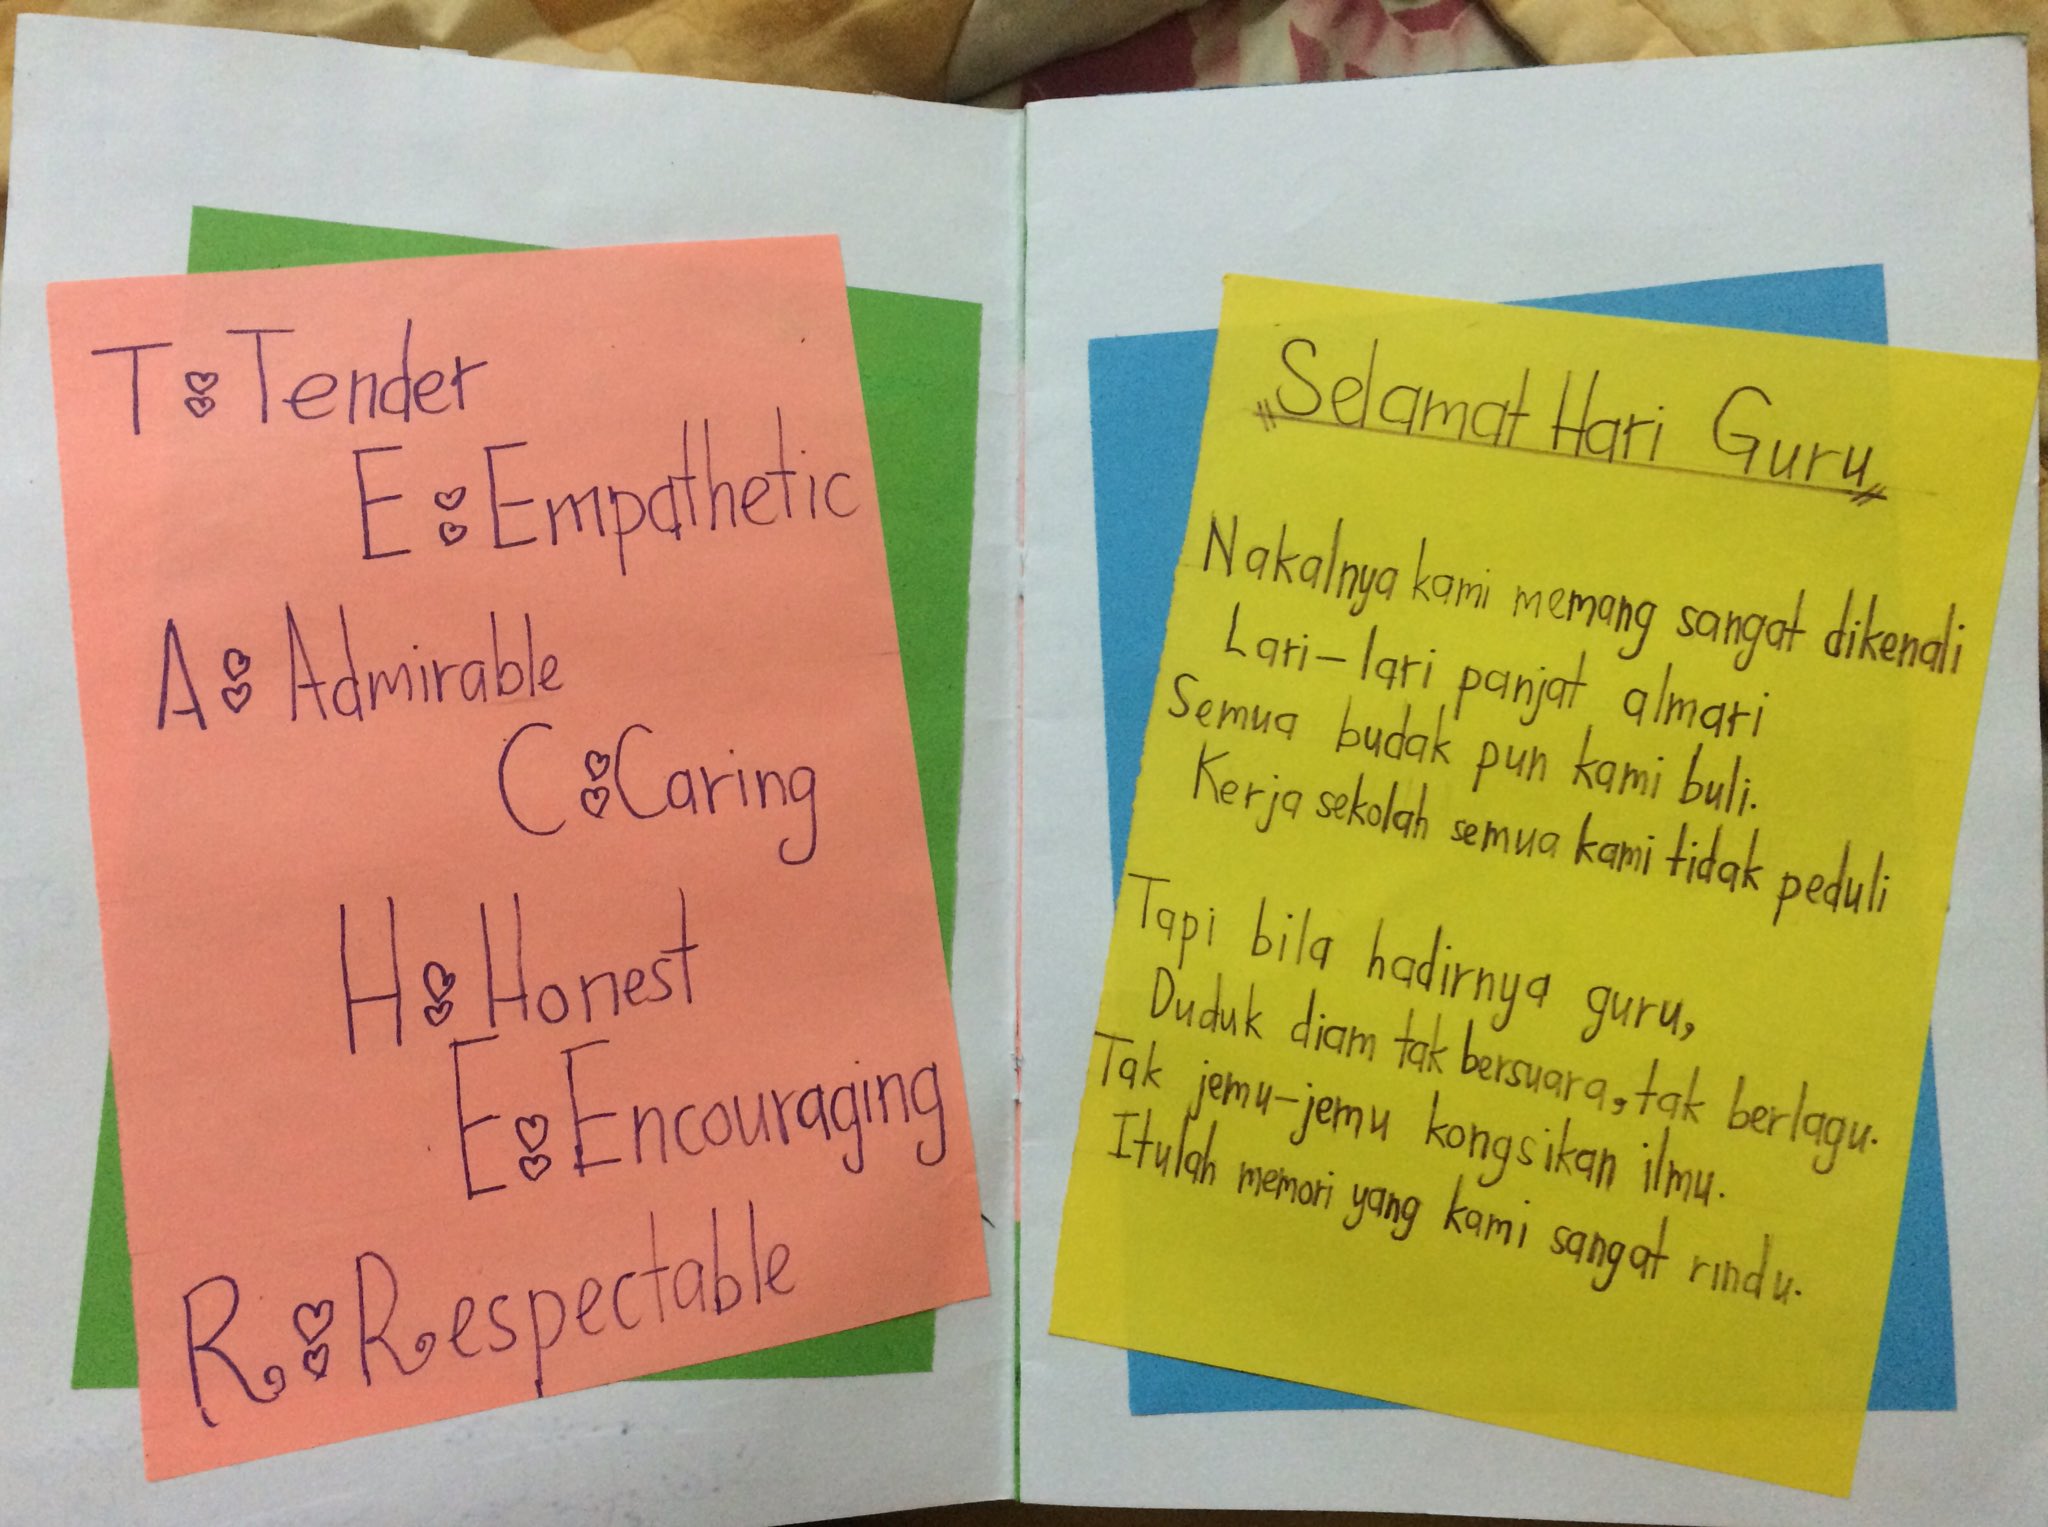 T: Tender
E: Empathetic
A: Admirable
C: Caring
H: Honest
E: Encouraging
R: Respectable
Selamat Hari Guru
Nakalnya kami memang sangat dikenali
Lari-lari panjat almari
Semua budak pun kami buli.
Kerja sekolah semua kami tidak peduli
Tapi bila hadirnya guru,
Duduk diam tak bersuara, tak berlagu.
Tak jemu-jemu kongsikan ilmu.
Itulah memori yang kami sangat rindu.